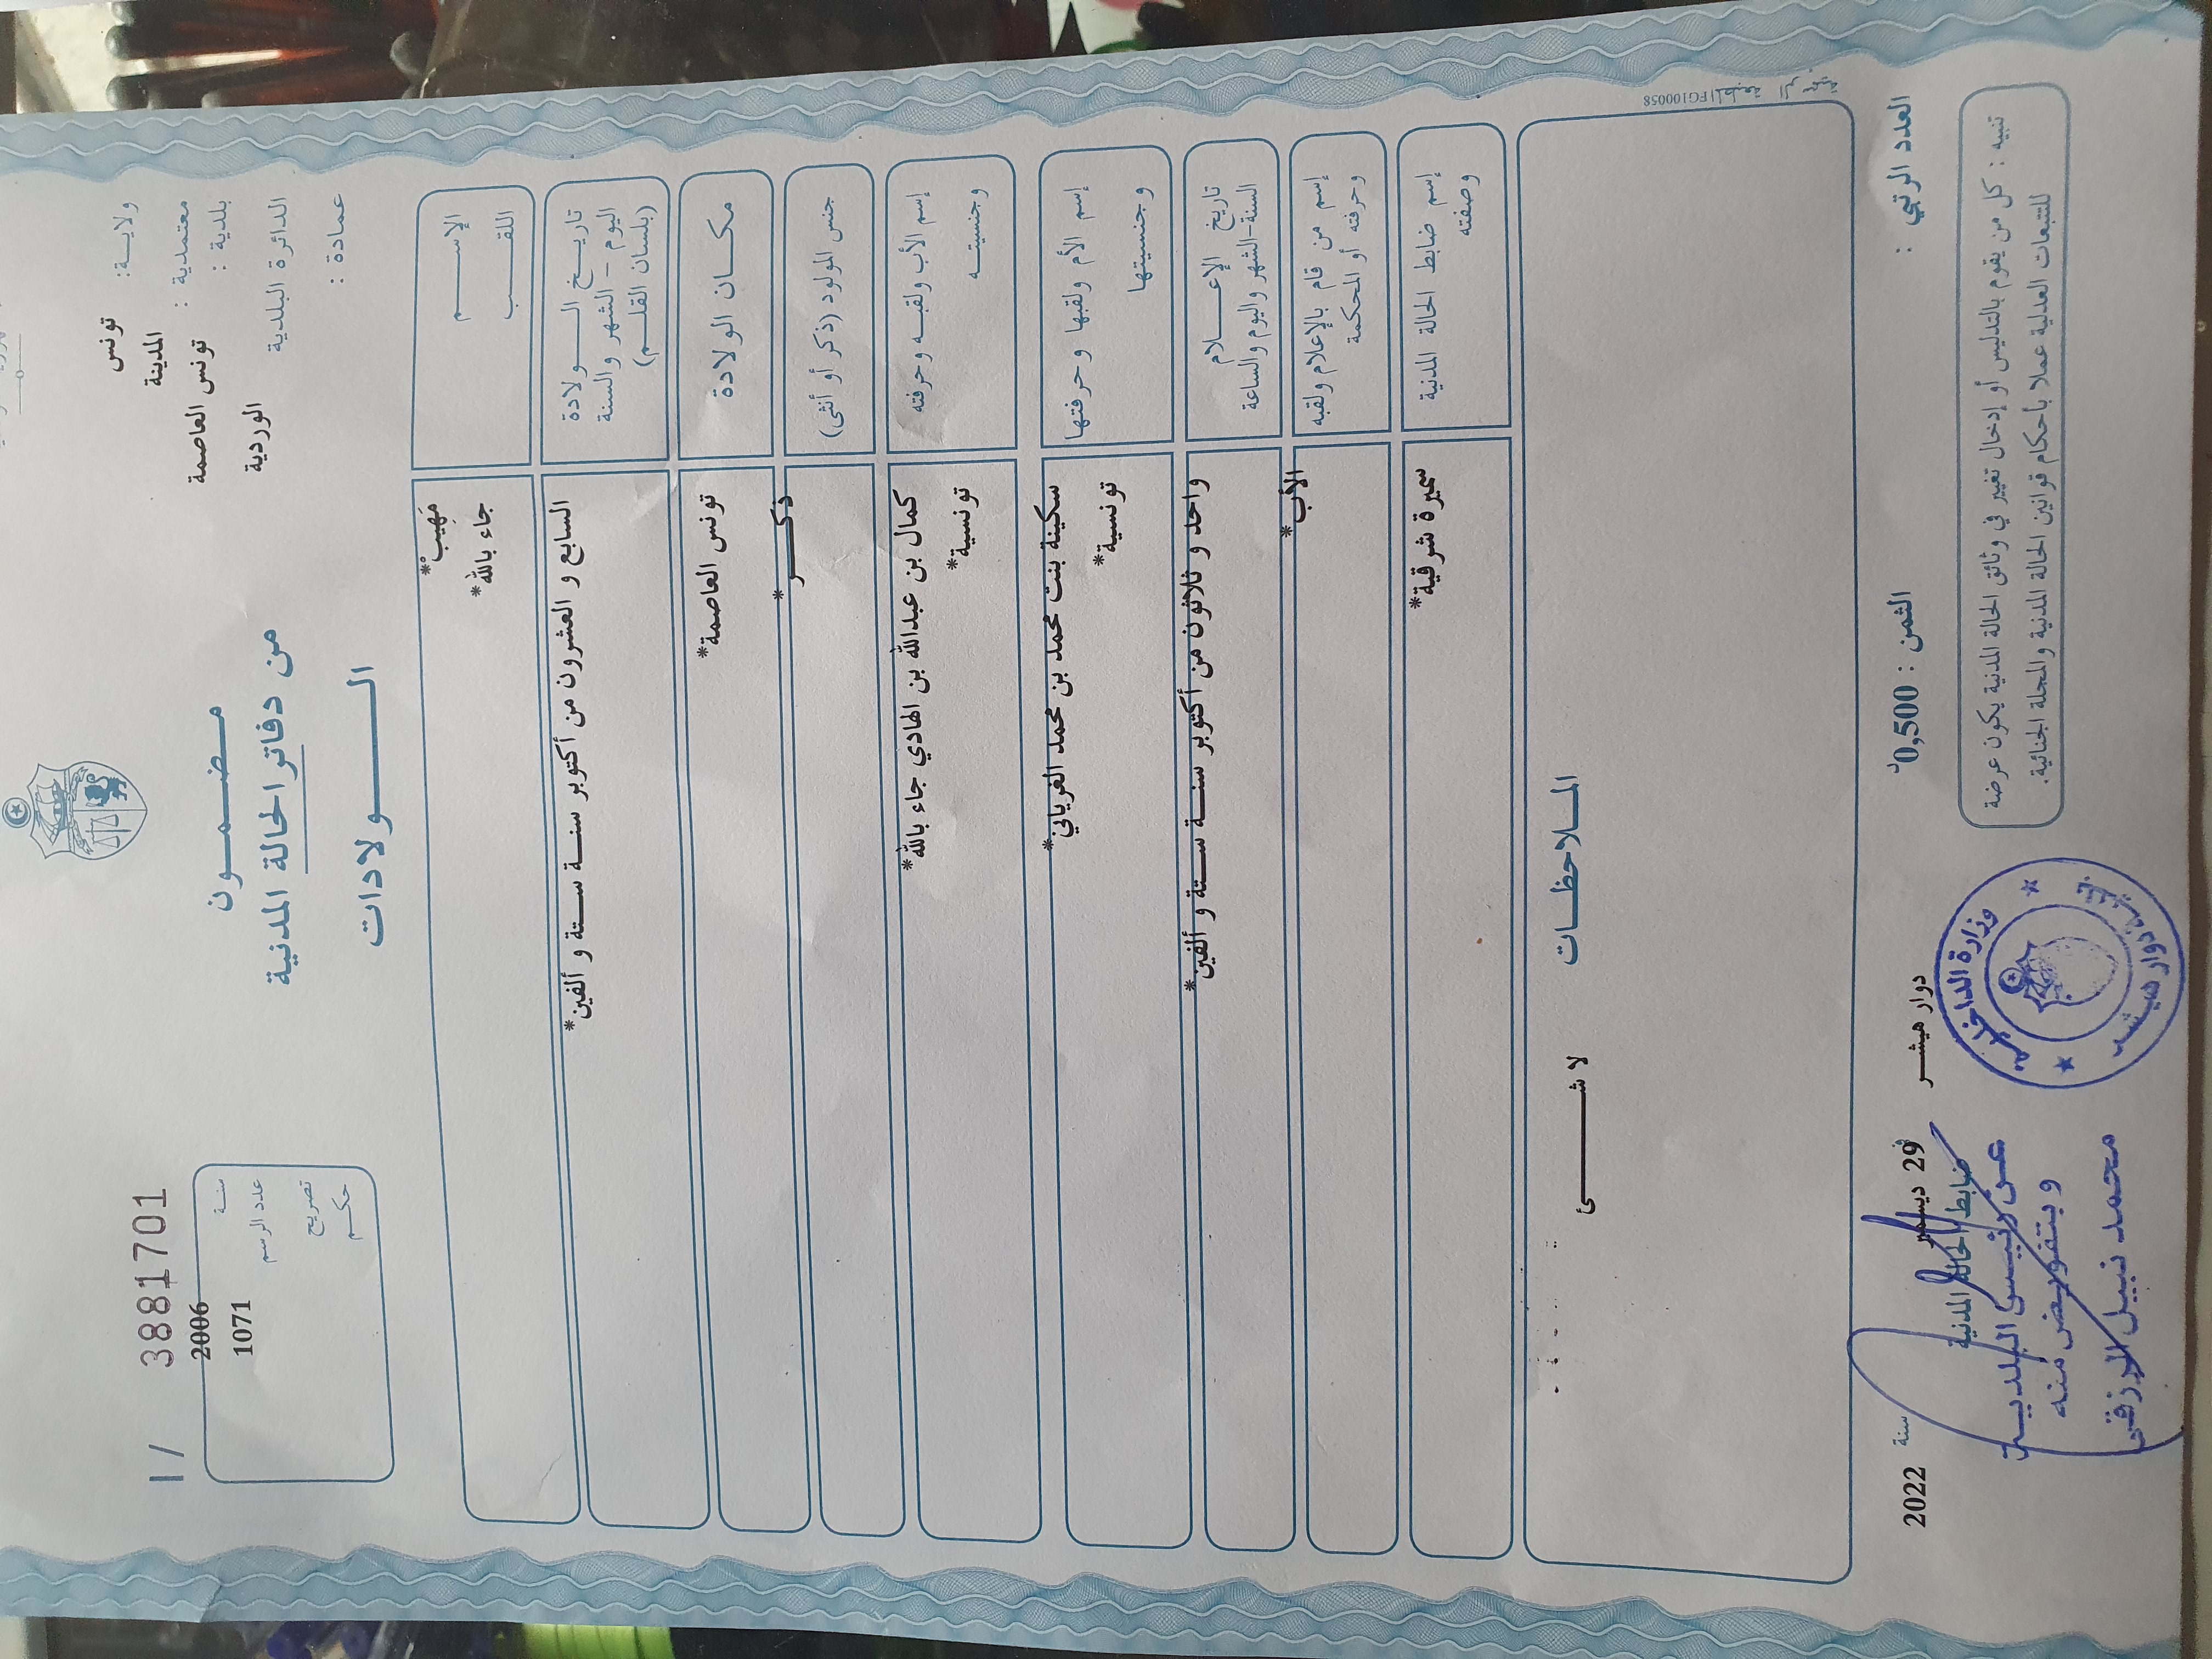 ولاية: تونس
معتمدية : المدينة
بلدية : تونس العاصمة
الدائرة البلدية الوردية
عمادة :
مضمون
من دفاتر الحالة المدنية
الولادات
1/ 3881701
سنة 2006
عدد الرسم 1071
تصريح
حكم
الإسم مَهِيبْ*
اللقب جاء بالله*
تاريخ الولادة السابع و العشرون من أكتوبر سنة ستة و ألفين*
اليوم - الشهر والسنة
(بلسان القلم)
مكان الولادة تونس العاصمة*
جنس المولود (ذكر أو أنثى) ذكر*
إسم الأب ولقبه وحرفته كمال بن عبدالله بن الهادي جاء بالله*
وجنسيته تونسية*
إسم الأم ولقبها وحرفتها سكينة بنت محمد بن محمد الغرياني*
وجنسيتها تونسية*
تاريخ الإعلام واحد و ثلاثون من أكتوبر سنة ستة و ألفين*
السنة-الشهر واليوم والساعة
إسم من قام بالإعلام ولقبه الأب*
وحرفته أو المحكمة
إسم ضابط الحالة المدنية سميرة شرقية*
وصفته
الملاحظات
لا شئ
FG100058
العدد الرتبي :
الثمن : 0,500د
دوار هيشر في 29 ديسمبر سنة 2022
ضابط الحالة المدنية
تنبيه : كل من يقوم بالتدليس أو إدخال تغيير في وثائق الحالة المدنية يكون عرضة
للتتبعات العدلية عملا بأحكام قوانين الحالة المدنية والمجلة الجنائية.
وزارة الداخلية
بلدية دوار هيشر
عن رئيس البلدية
وبتفويض منه
محمد نبيل الرزقي